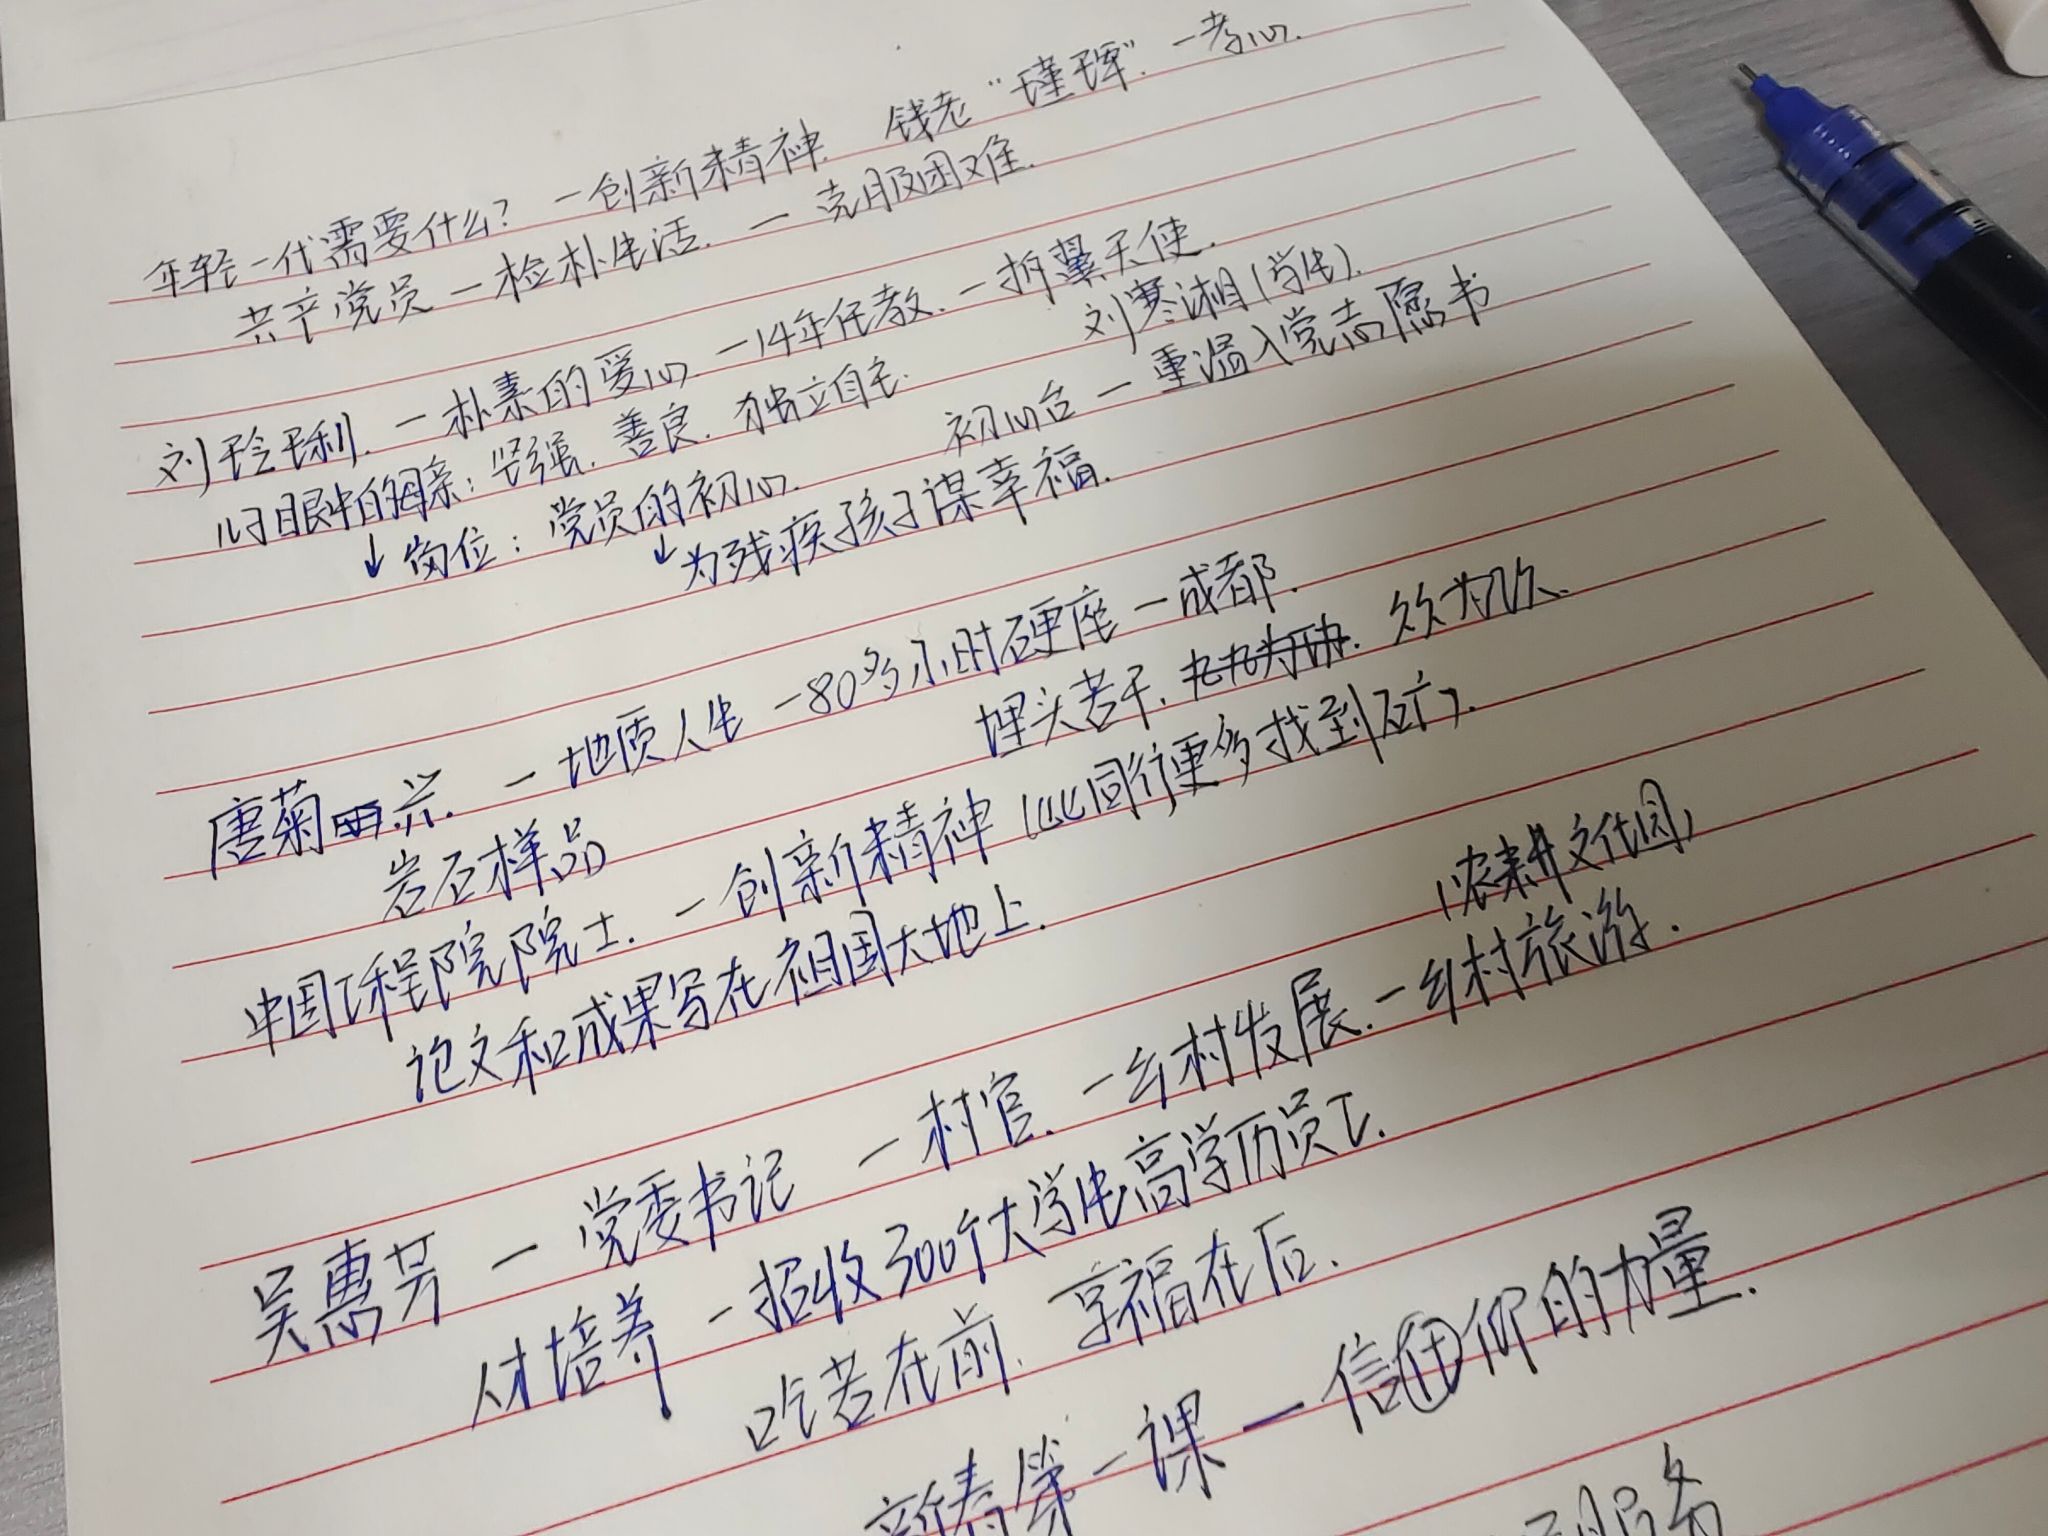 年轻一代需要什么? 一创新精神. 钱老“瑾珲”. 一考心.
共产党员一检朴生活. 一 克服困难.
刘玲琍. 一朴素的爱心 一14年任教. 一折翼天使.
儿子眼中的母亲: 坚强. 善良. 独立自主. 刘寒湘(学生).
↓岗位: 党员的初心. 初心台 一 重温入党志愿书
↓为残疾孩子谋幸福.
唐菊兴. 一 地质人生 一80多小时硬座 一成都.
岩石样品 埋头苦干.
中国工程院院士. 一创新精神 同行更多找到矿.
论文和成果写在祖国大地上.
(农耕文化园)
吴惠芳 一 党委书记 一村官. 一乡村发展. 一乡村旅游.
人才培养 一招收300个大学生高学历员工.
吃苦在前. 享福在后.
新春第一课 一 信仰的力量.
服务